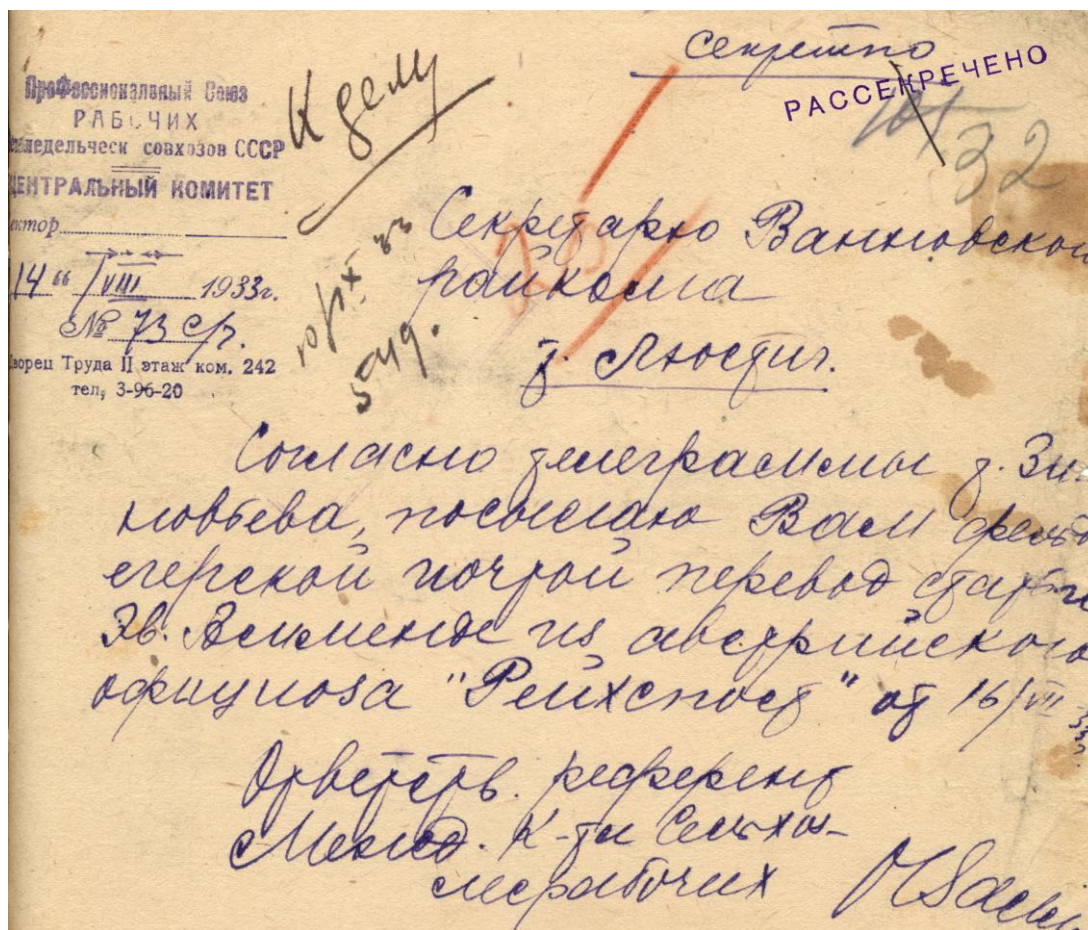 Секретно
РАССЕКРЕЧЕНО
32
Профессиональный Союз
РАБОЧИХ
земледельческ совхозов СССР
ЦЕНТРАЛЬНЫЙ КОМИТЕТ
"14" VIII 1933г.
№ 73 с/г.
Дворец Труда II этаж ком. 242
тел, 3-96-20
К делу
Секретарю Ванновской
райкома
т. Люстиг.
Согласно телеграммы т. Зи-
новьева, посылаю Вам фельд
егерской почтой перевод статьи
Эв. Амменде из австрийского
официоза "Рейхспост" от 16/VII 33г.
Ответств. референт
Межд. К-та Сельхоз-
лесрабочих